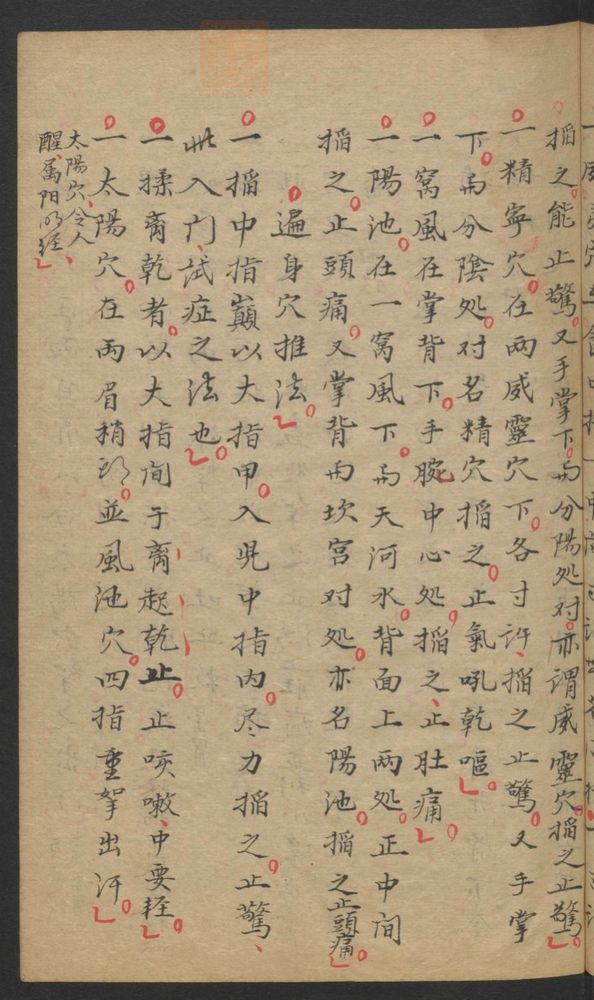 掐之能止驚又手掌下與分陽处对亦謂威靈穴掐之止驚
一精寧穴在兩威靈穴下各寸許掐之止驚又手掌
下與分陰处对名精穴掐之止氣吼乾嘔
一窩風在掌背下手腕中心处掐之止肚痛
一陽池在一窩風下與天河水背面上两处正中间
掐之止頭痛又掌背與坎宫对处亦名陽池掐之止頭痛
遍身穴推法
一掐中指巔以大指甲入児中指内尽力掐之止驚
此入门試症之法也
一揉臍乾者以大指甸于臍起乾止止咳嗽中要輊
一太陽穴在两眉稍政並風池穴四指重拏出汗
太陽穴令人
醒属陽明经